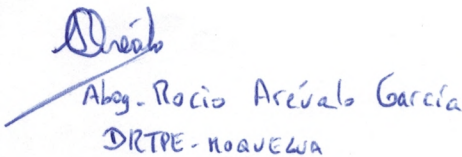 Abog. Rocio Arévalo García
DRTPE - MOQUEGUA